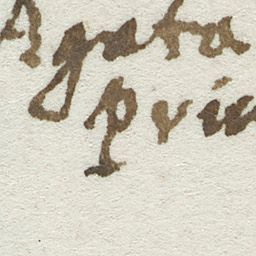 Agata
pri